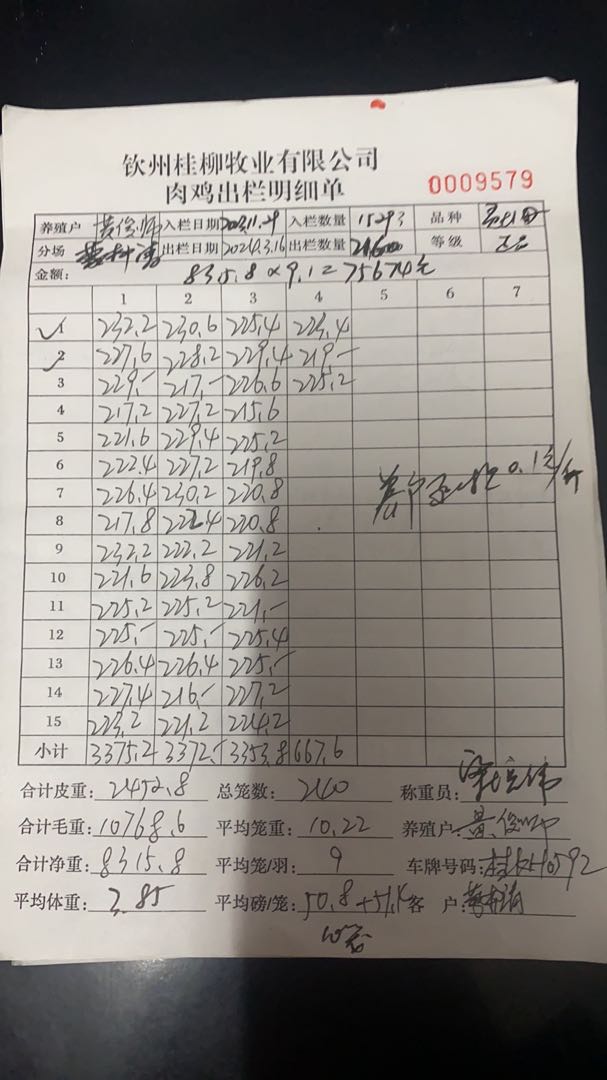 钦州桂柳牧业有限公司
肉鸡出栏明细单 0009579
养殖户 黄俊师 入栏日期 2023.11.29 入栏数量 15293 品种
分场 入栏日期 2024.3.16 出栏数量 2160 等级 正品
金额: 8315.8×9.1=75674元
1 2 3 4 5 6 7
1 232.2 230.6 225.4 223.4
2 227.6 228.2 229.4 219.-
3 229.- 217.- 226.6 225.2
4 217.2 227.2 215.6
5 221.6 229.4 225.2
6 222.4 227.2 219.8
7 226.4 230.2 220.8
8 217.8 222.4 220.8
9 232.2 222.2 221.2
10 221.6 223.8 226.2
11 225.2 225.2 221.-
12 225.- 225.- 225.4
13 226.4 226.4 225.-
14 227.4 216.- 227.2
15 223.2 221.2 224.2
小计 3375.2 3372.- 3353.8 667.6
0.1元/斤
合计皮重: 2452.8 总笼数: 240 称重员:
合计毛重: 10768.6 平均笼重: 10.22 养殖户: 黄俊师
合计净重: 8315.8 平均笼/羽: 9 车牌号码:
平均体重: 3.85 平均磅/笼: 50.8+51.4 客 户: